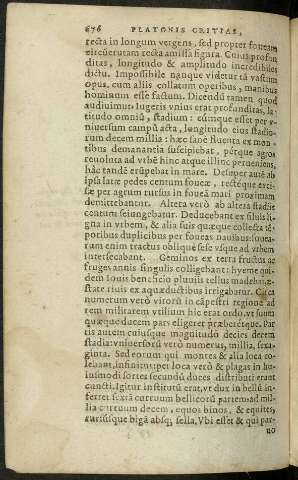 676 PLATONIS CRITIAS,
recta in longum vergens, sed propter foueam
circūeuntem recta amissa figura. Cuius profun
ditas, longitudo & amplitudo incredibiles
dictu. Impossibile nanque videtur tā vastum
opus, cum aliis collatum operibus, manibus
hominum esse factum. Dicendū tamen quod
audiuimus. Iugeris vnius erat profunditas, la-
titudo omniū, stadium: cūmque esset per v-
niuersum campū acta, longitudo eius stadio-
rum decem millia: hæc sanè fluenta ex mon-
tibus demanantia suscipiebat, pérque agros
reuoluta ad vrbē hinc atque illinc perueniens,
hac tandē erūpebat in mare. Desuper autē ab
ipsa latæ pedes centum foueæ, rectéque exci-
sæ per agrum rursus in foueā mari proximam
demittebantur. Altera verò ab altera stadiis
centum seiungebatur. Deducebant ex siluis li-
gna in vrbem, & alia suis quæque collecta tē-
poribus duplicibus per foueas nauibus: fouea-
rum enim tractus obliquè sese vsque ad vrbem
intersecabant. Geminos ex terra fructus ac
fruges annis singulis colligebant: hyeme qui-
dem Iouis beneficio pluuiis tellus madebat, æ-
state riuis ex aquæductibus irrigabatur. Cuius
numerum verò virorū in cāpestri regione ad
rem militarem vtilium hic erat ordo, vt suum
quæque ducem pars eligeret præberétque. Par
tis autem cuiusque magnitudo decies decem
stadia: vniuersorū verò numerus, millia, sexa-
ginta. Sed eorum qui montes & alia loca co-
lebant, infinitus: per loca verò & plagas in hu-
iusmodi sortes secundū duces distributi erant
cuncti. Igitur institutū erat, vt dux in bellū in-
ferret sextā curruum bellicorū partem ad mil-
lia curruum decem, equos binos, & equites,
cursúsque bigā absq; sella. Vbi esset & qui par-
uo